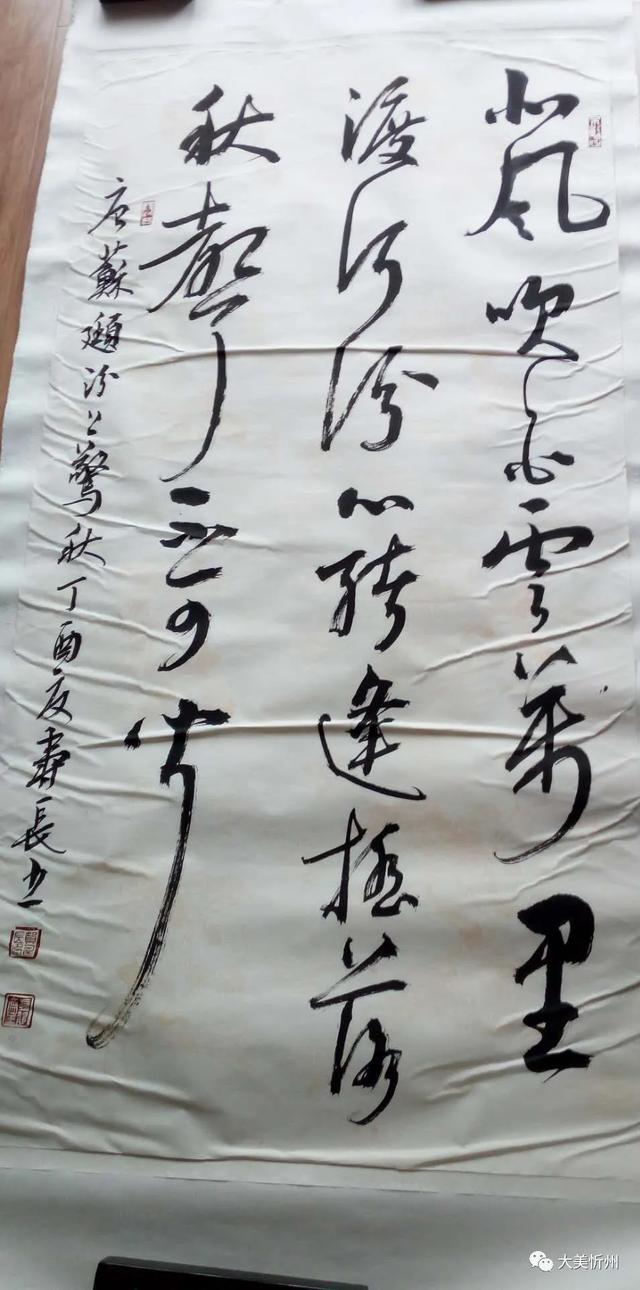 北風吹白雲萬里
渡河汾心緒逢摇落
秋聲不可聞
唐蘇頲汾上驚秋丁酉夏壽長书
大美忻州